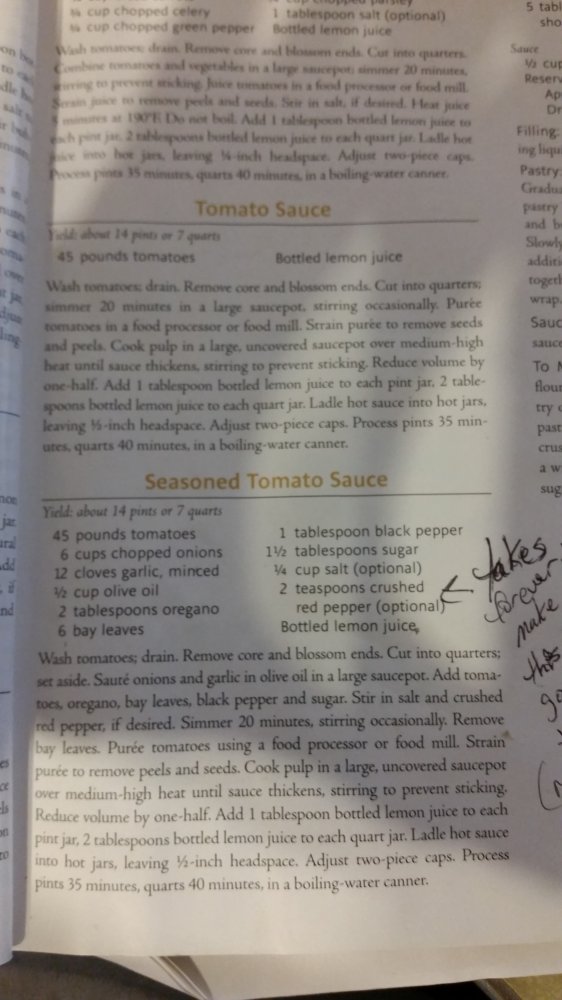 cup chopped celery
cup chopped green pepper
1 tablespoon salt (optional)
Bottled lemon juice
Wash tomatoes; drain. Remove core and blossom ends. Cut into quarters.
Combine tomatoes and vegetables in a large saucepot; simmer 20 minutes,
stirring to prevent sticking. Juice tomatoes in a food processor or food mill.
Strain juice to remove peels and seeds. Stir in salt, if desired. Heat juice
5 minutes at 190°F. Do not boil. Add 1 tablespoon bottled lemon juice to
each pint jar, 2 tablespoons bottled lemon juice to each quart jar. Ladle hot
juice into hot jars, leaving ¼-inch headspace. Adjust two-piece caps.
Process pints 35 minutes, quarts 40 minutes, in a boiling-water canner.
Tomato Sauce
Yield: about 14 pints or 7 quarts
45 pounds tomatoes
Bottled lemon juice
Wash tomatoes; drain. Remove core and blossom ends. Cut into quarters;
simmer 20 minutes in a large saucepot, stirring occasionally. Purée
tomatoes in a food processor or food mill. Strain purée to remove seeds
and peels. Cook pulp in a large, uncovered saucepot over medium-high
heat until sauce thickens, stirring to prevent sticking. Reduce volume by
one-half. Add 1 tablespoon bottled lemon juice to each pint jar, 2 table-
spoons bottled lemon juice to each quart jar. Ladle hot sauce into hot jars,
leaving ½-inch headspace. Adjust two-piece caps. Process pints 35 min-
utes, quarts 40 minutes, in a boiling-water canner.
Seasoned Tomato Sauce
Yield: about 14 pints or 7 quarts
45 pounds tomatoes
6 cups chopped onions
12 cloves garlic, minced
½ cup olive oil
2 tablespoons oregano
6 bay leaves
1 tablespoon black pepper
1½ tablespoons sugar
¼ cup salt (optional)
2 teaspoons crushed
red pepper (optional)
Bottled lemon juice
Wash tomatoes; drain. Remove core and blossom ends. Cut into quarters;
set aside. Sauté onions and garlic in olive oil in a large saucepot. Add toma-
toes, oregano, bay leaves, black pepper and sugar. Stir in salt and crushed
red pepper, if desired. Simmer 20 minutes, stirring occasionally. Remove
bay leaves. Purée tomatoes using a food processor or food mill. Strain
purée to remove peels and seeds. Cook pulp in a large, uncovered saucepot
over medium-high heat until sauce thickens, stirring to prevent sticking.
Reduce volume by one-half. Add 1 tablespoon bottled lemon juice to each
pint jar, 2 tablespoons bottled lemon juice to each quart jar. Ladle hot sauce
into hot jars, leaving ½-inch headspace. Adjust two-piece caps. Process
pints 35 minutes, quarts 40 minutes, in a boiling-water canner.
takes
forever
make
this
Sauce
½ cup
Reserv
Ap
Filling:
ing liqu
Pastry:
Gradua
pastry
and b
Slowly
additi
togeth
wrap.
Sauc
sauce
To M
flour
try c
past
crus
a w
sug